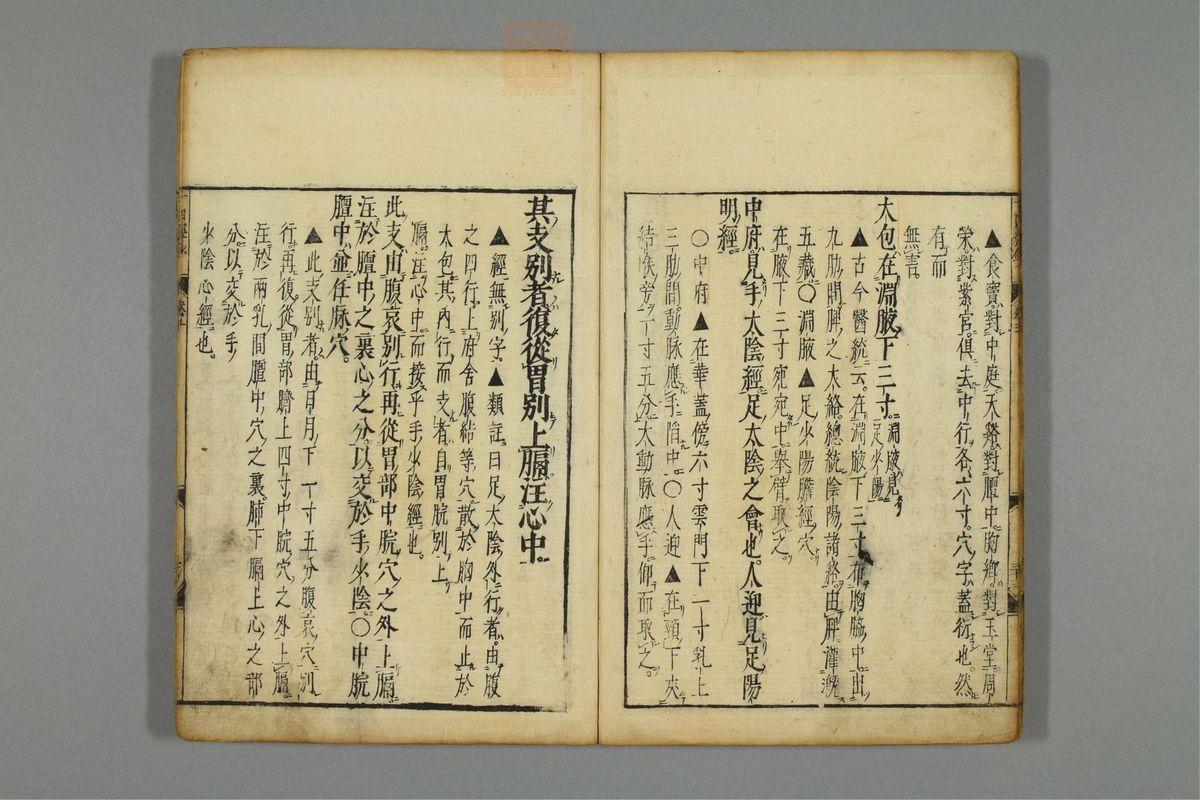 ▲食竇對中庭天谿對膻中胸鄉對玉堂周
榮對紫宮俱去中行各六寸穴字蓋衍也然
有而
無害
大包在淵腋下三寸淵腋見足少陽
▲古今醫統云在淵腋下三寸布胸脇中出
九肋間脾之大絡總統陰陽諸絡由脾灌漑
五藏〇淵腋▲足少陽膽經穴
在腋下三寸宛宛中舉臂取之
中府見手太陰經足太陰之會也人迎見足陽
明經
〇中府▲在華蓋傍六寸雲門下一寸乳上
三肋間動脉應手陷中〇人迎▲在頸下夾
結喉旁一寸五分大動脉應手仰而取之
其支別者復從胃別上膈注心中
▲經無別字▲類註曰足太陰外行者由腹
之四行上府舍腹結等穴散於胸中而止於
大包其內行而支者自胃脘別上
膈注心中而接乎手少陰經也
此支由腹哀別行再從胃部中脘穴之外上膈
注於膻中之裏心之分以交於手少陰〇中脘
膻中並任脉穴
▲此支別者由日月下一寸五分腹哀穴別
行再復從胃部臍上四寸中脘穴之外上膈
注於兩乳間膻中穴之裏肺下膈上心之部
分以交於手
少陰心經也